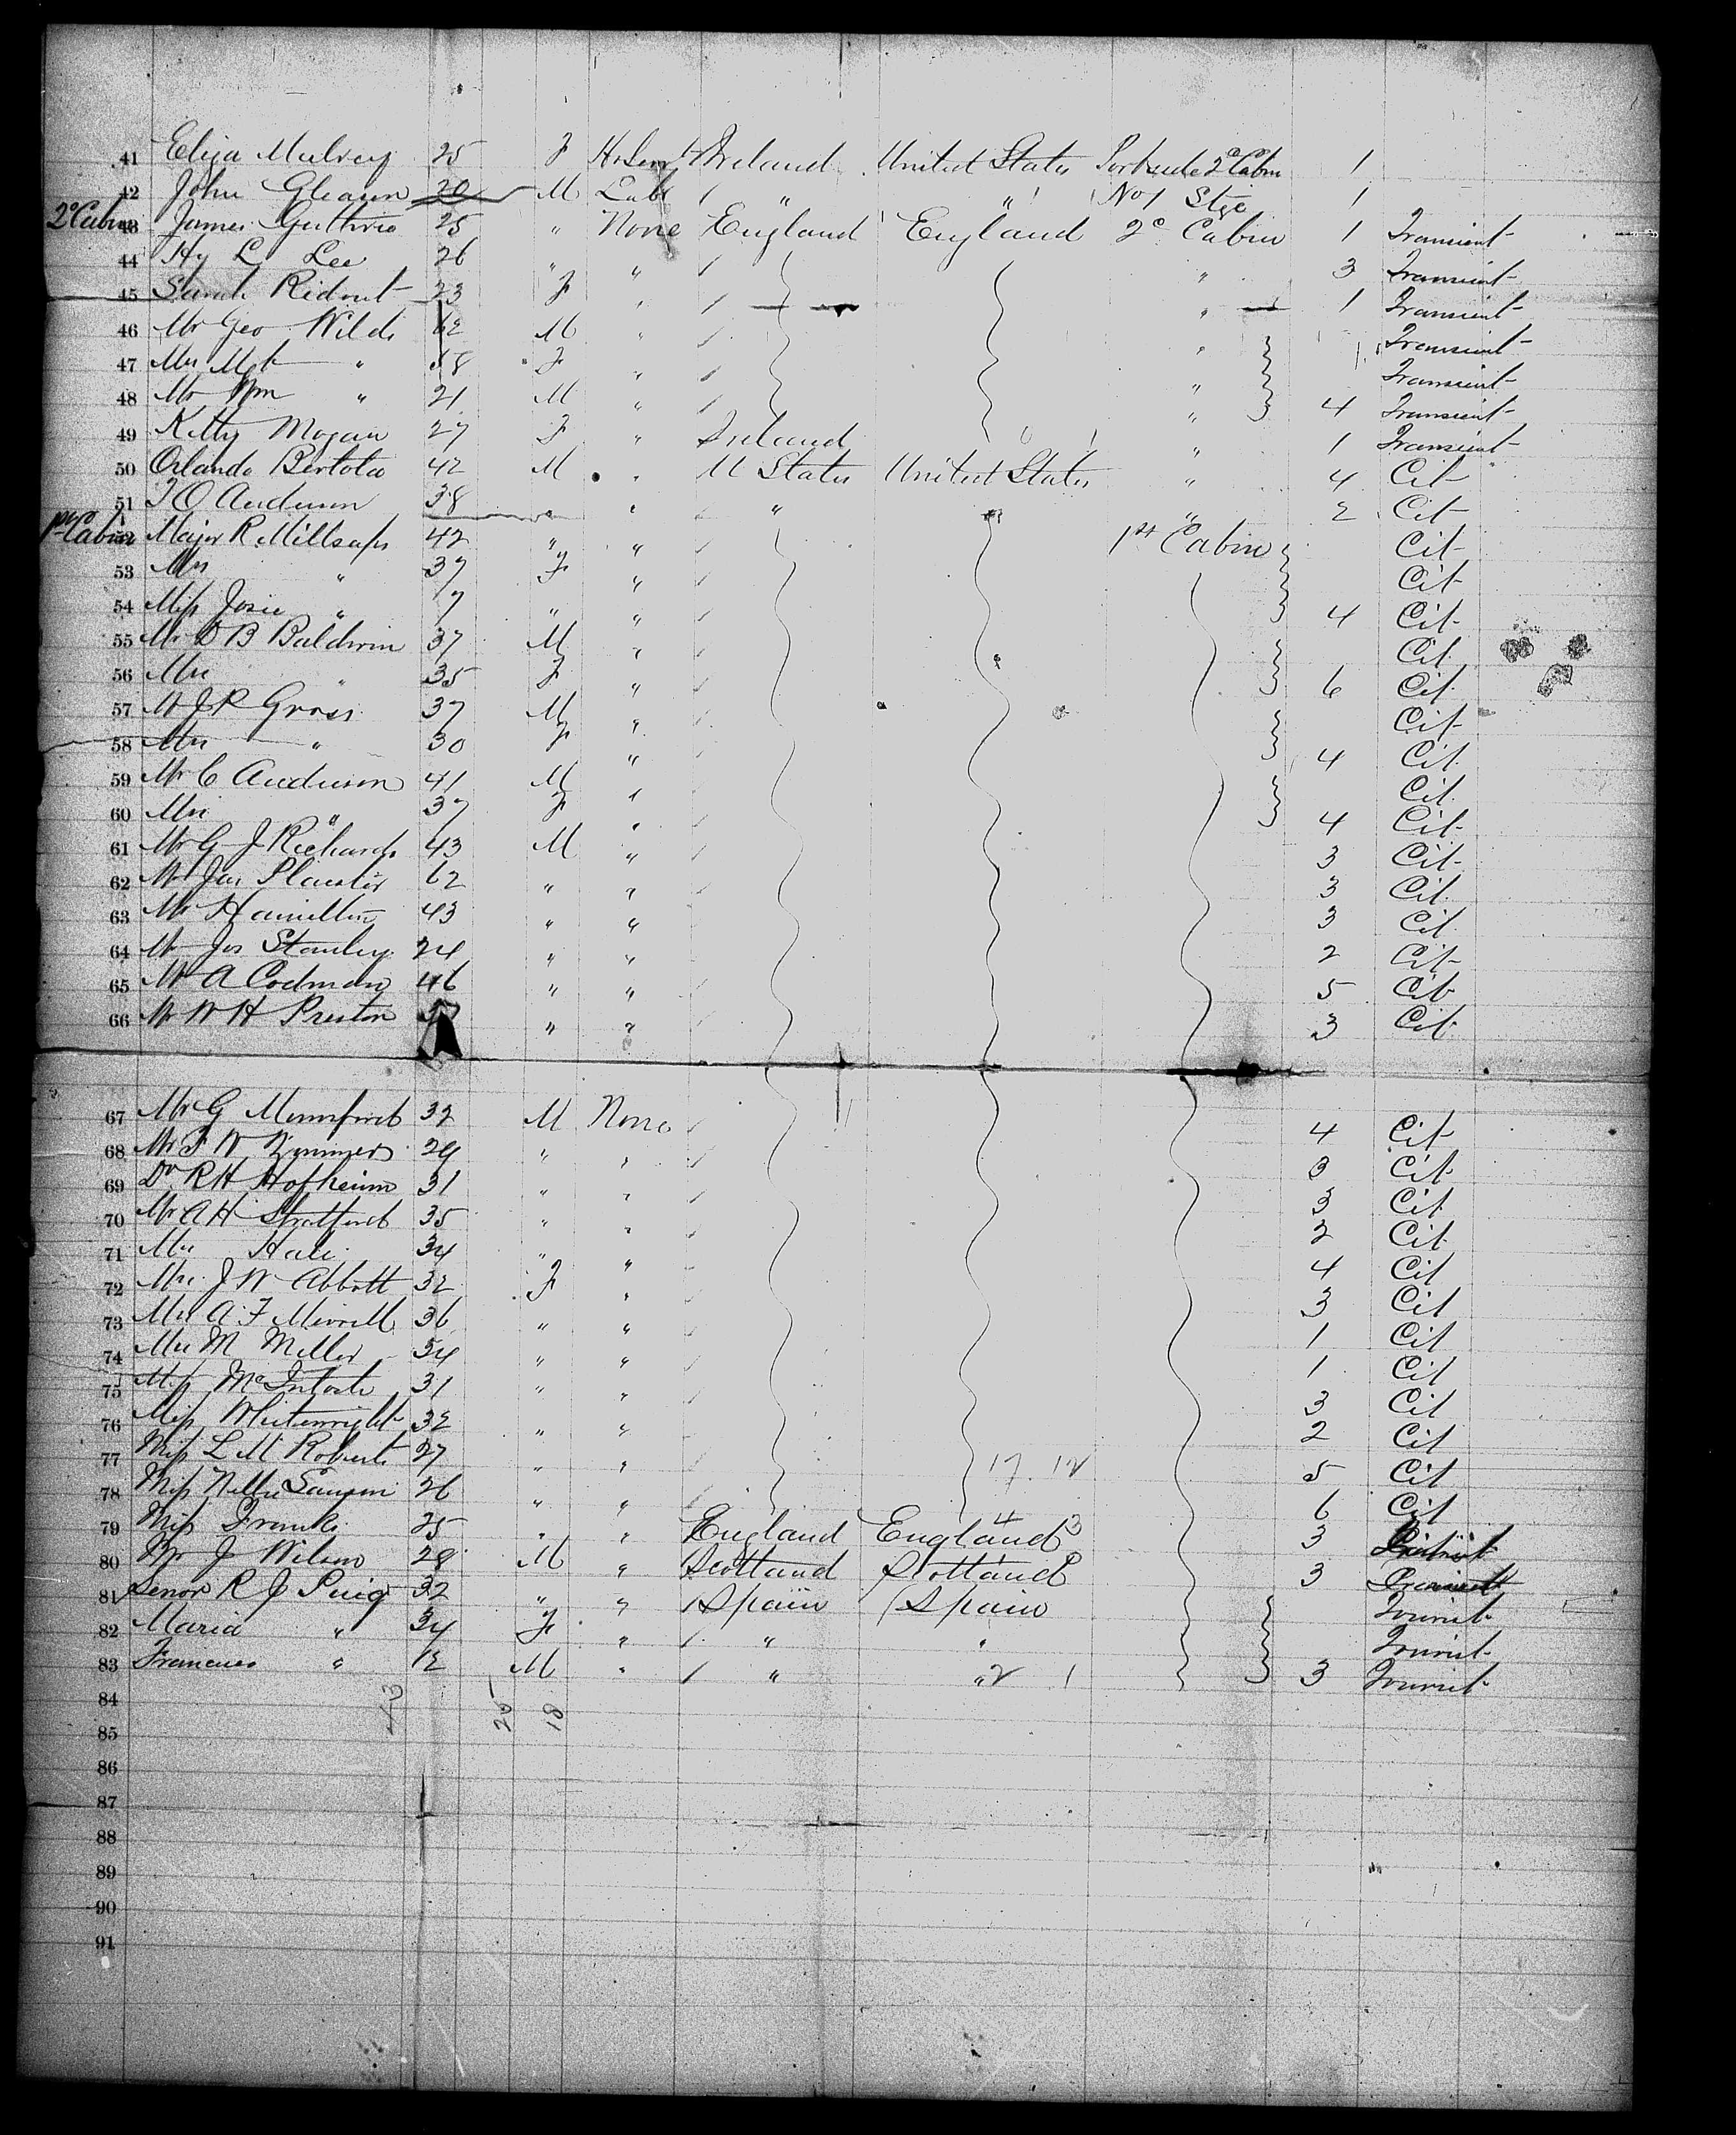 41 Eliza Mulvey 25 F H. Servt Ireland United States Portside 2° Cabin 1
42 John Gleason 20 M Labr " " No 1 Stge 1
2° Cabin 43 James Guthrie 25 " None England England 2° Cabin 1 Transient
44 Hy L Lee 26 " " " 3 Transient
45 Sarah Ridout 23 F " " 1 Transient
46 Mr Geo Wilds 62 M " " Transient
47 Mrs Mgt " 58 F " Transient
48 Mr Wm " 21 M " " 4 Transient
49 Kitty Mogan 27 F " Ireland " 1 Transient
50 Orlando 42 M " U States United States " 4 Cit
51 Anderson 38 " " " " " 2 Cit
1st Cabin 52 Major R Millsaps 42 " " 1st Cabin Cit
53 Mrs " 37 F " Cit
54 Miss Josie " 7 " " 4 Cit
55 Mr D B Baldwin 37 M " Cit
56 Mrs " 35 F " 6 Cit
57 Mr J R Gross 37 M " Cit
58 Mrs " 30 F " 4 Cit
59 Mr C Anderson 41 M " Cit
60 Mrs " 37 F " 4 Cit
61 Mr G J Richards 43 M " 3 Cit
62 Mr Jas 62 " " 3 Cit
63 Mr Hamilton 43 " " 3 Cit
64 Mr Jos Stanley 24 " " 2 Cit
65 Mr A Codman 46 " " 5 Cit
66 Mr W H Preston " " 3 Cit
67 Mr G 32 M None 4 Cit
68 Mr F W Zimmer 29 " " 3 Cit
69 Dr R H Hofheim 31 " " 3 Cit
70 Mr A H Stratford 35 " " 2 Cit
71 Mrs Hale 34 " " 4 Cit
72 Mrs J W Abbott 32 F " 3 Cit
73 Mrs A F Merrill 36 " " 1 Cit
74 Mrs M Miller 34 " " 1 Cit
75 Miss McIntosh 31 " " 3 Cit
76 Miss Whitewright 32 " " 2 Cit
77 Miss L M Roberts 27 " " 17 12 5 Cit
78 Miss Nellie 26 " " 6 Cit
79 Miss Franks 25 " " England England 3
80 Mr J Wilson 28 M " Scotland Scotland 3
81 Senor R J Puig 32 " " Spain Spain Tourist
82 Maria " 34 F " " " Tourist
83 " 12 M " " " 2 1 3 Tourist
84 43 25 18
85
86
87
88
89
90
91